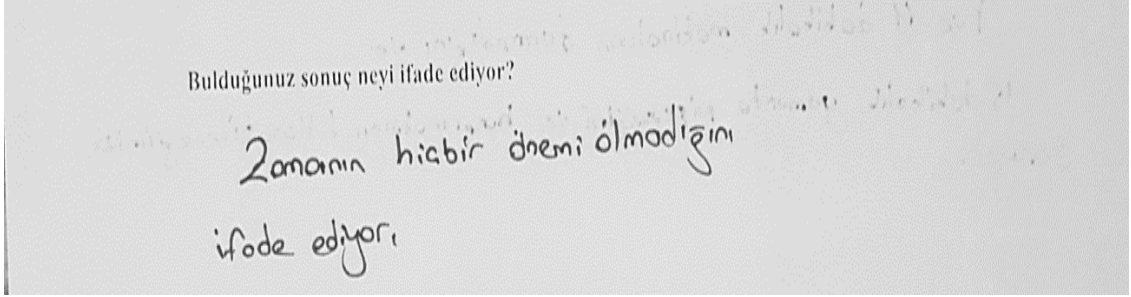 Bulduğunuz sonuç neyi ifade ediyor?
Zamanın hiçbir önemi olmadığını
ifade ediyor.